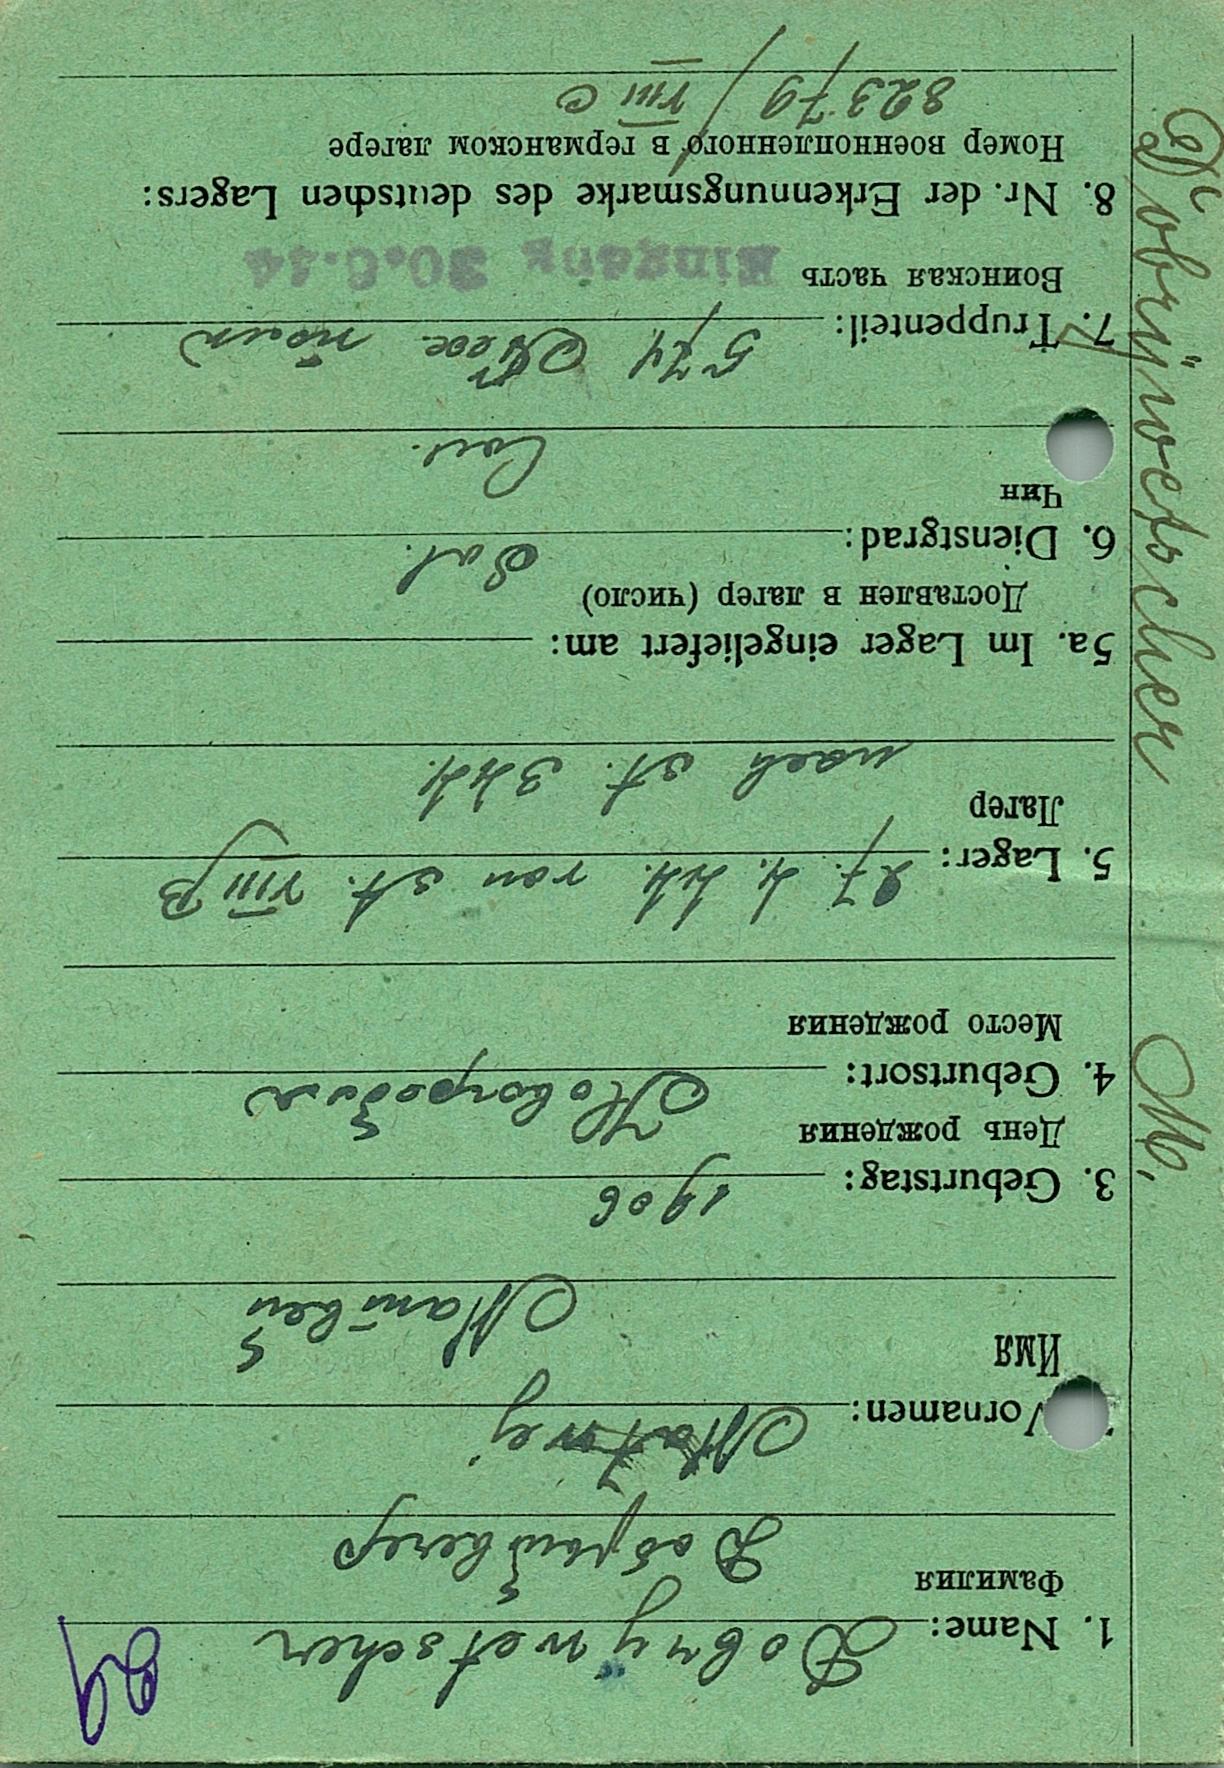 Dobrywetscher M.
29
1. Name: Dobrywetscher
Фамилия
Добрывечер
Vornamen: Matwej
Имя
Матвей
3. Geburtstag: 1906
День рождения
4. Geburtsort:
Место рождения
5. Lager: 27. 4. 44. von St. VIII B
Лагер
nach St. 344.
5a. Im Lager eingeliefert am:
Доставлен в лагер (число)
6. Dienstgrad: Sol.
Чин
Сол.
7. Truppenteil: 574
Воинская часть
Eingang 30.6.44
8. Nr. der Erkennungsmarke des deutschen Lagers:
Номер военнопленного в германском лагере
82379 / VIII C